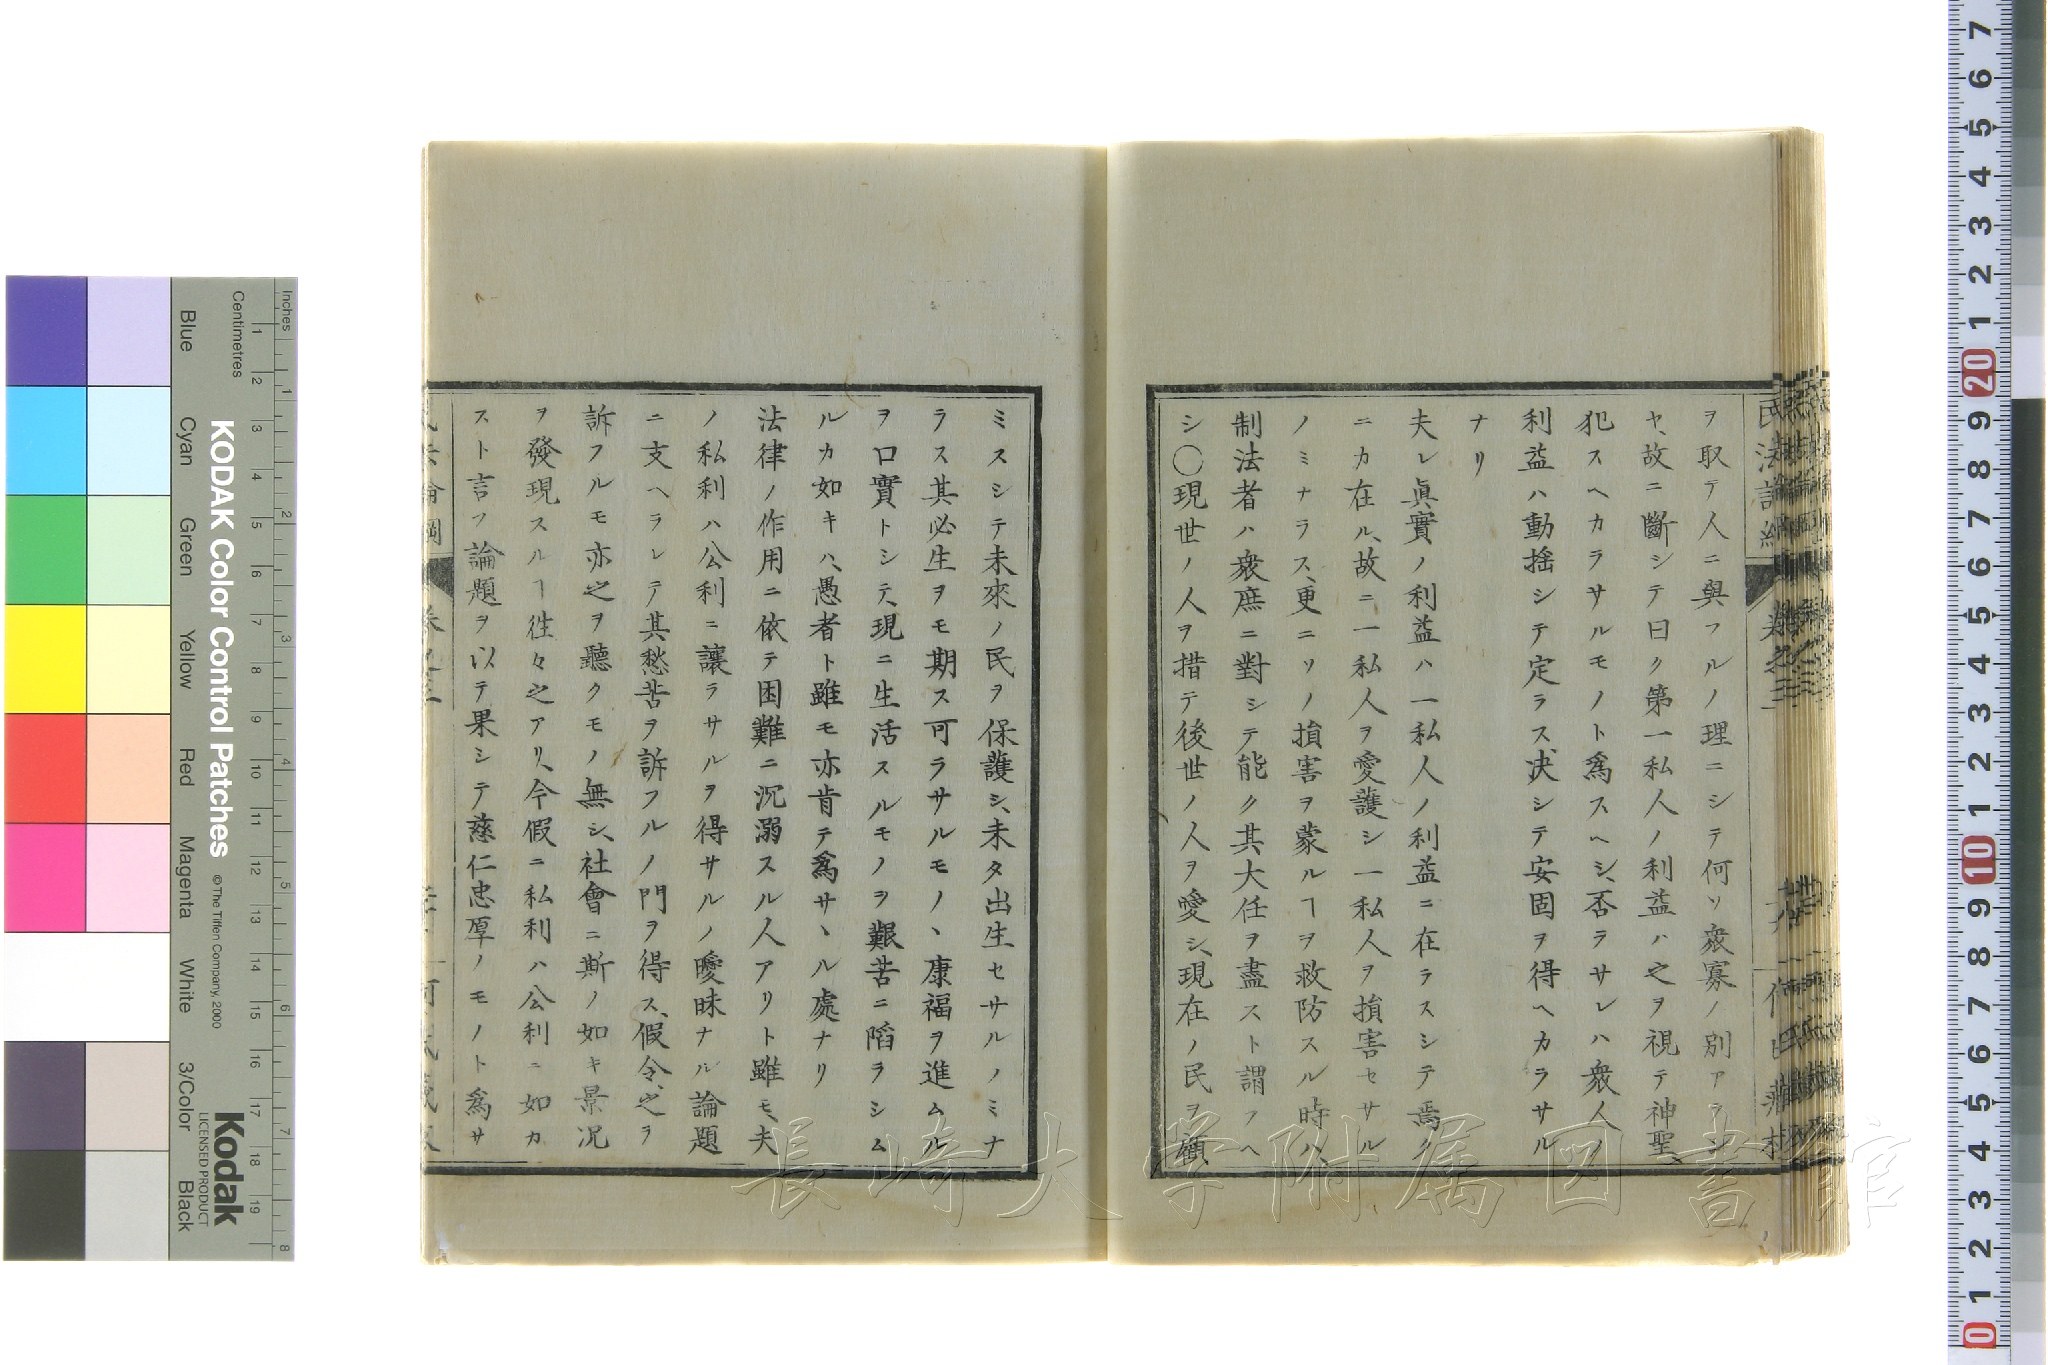 ヲ取テ人ニ與フルノ理ニシテ何ソ衆寡ノ別アラン
ヤ、故ニ斷シテ曰ク第一私人ノ利益ハ之ヲ視テ神聖
犯スヘカラサルモノト爲スヘシ、否ラサレハ衆人ノ
利益ハ動搖シテ定ラス决シテ安固ヲ得ヘカラサル
ナリ
夫レ眞實ノ利益ハ一私人ノ利益ニ在ラスシテ焉ク
ニカ在ル、故ニ一私人ヲ愛護シ一私人ヲ損害セサル
ノミナラス、更ニソノ損害ヲ蒙ルヿヲ救防スル時ハ、
制法者ハ衆庶ニ對シテ能ク其大任ヲ盡スト謂フヘ
シ〇現世ノ人ヲ措テ後世ノ人ヲ愛シ、現在ノ民ヲ顧
ミスシテ未來ノ民ヲ保護シ、未タ出生セサルノミナ
ラス其必生ヲモ期ス可ラサルモノヽ康福ヲ進ムル
ヲ口實トシテ、現ニ生活スルモノヲ艱苦ニ陷ヲシム
ルカ如キハ、愚者ト雖モ亦肯テ爲サヽル處ナリ
法律ノ作用ニ依テ困難ニ沉溺スル人アリト雖モ、夫
ノ私利ハ公利ニ讓ラサルヲ得サルノ曖昧ナル論題
ニ支ヘラレテ其愁苦ヲ訴フルノ門ヲ得ス、假令、之ヲ
訴フルモ亦之ヲ聽クモノ無シ、社會ニ斯ノ如キ景况
ヲ發現スルヿ徃々之アリ、今假ニ私利ハ公利ニ如カ
スト言フ論題ヲ以テ果シテ慈仁忠厚ノモノト爲サ
民法論綱
卷之三
何氏藏板
長崎大学附属図書館
KODAK Color Control Patches
© The Tiffen Company, 2000
Kodak
LICENSED PRODUCT
Inches
Centimetres
Blue
Cyan
Green
Yellow
Red
Magenta
White
3/Color
Black